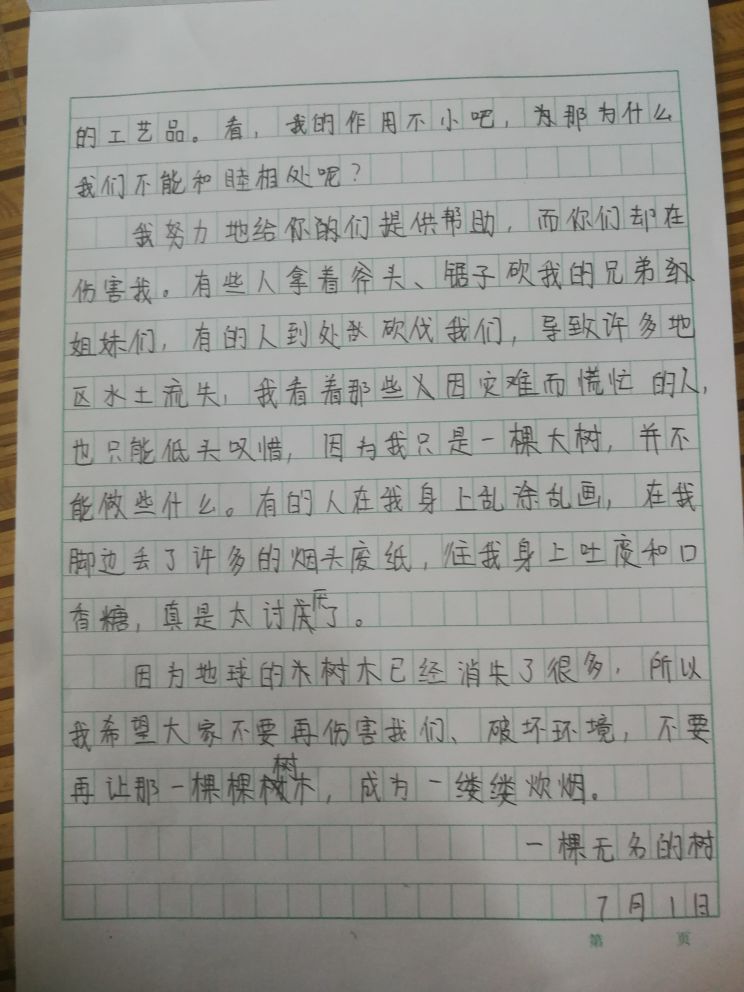 的工艺品。看，我的作用不小吧，为那为什么
我们不能和睦相处呢？
我努力地给你的们提供帮助，而你们却在
伤害我。有些人拿着斧头、锯子砍我的兄弟
姐妹们，有的人到处砍伐我们，导致许多地
区水土流失，我看着那些因灾难而慌忙的人，
也只能低头叹惜，因为我只是一棵大树，并不
能做些什么。有的人在我身上乱涂乱画，在我
脚边丢了许多的烟头废纸，往我身上吐痰和口
香糖，真是太讨厌了。
因为地球的树木已经消失了很多，所以
我希望大家不要再伤害我们、破坏环境，不要
再让那一棵棵树木，成为一缕缕炊烟。
一棵无名的树
7月1日
第 页